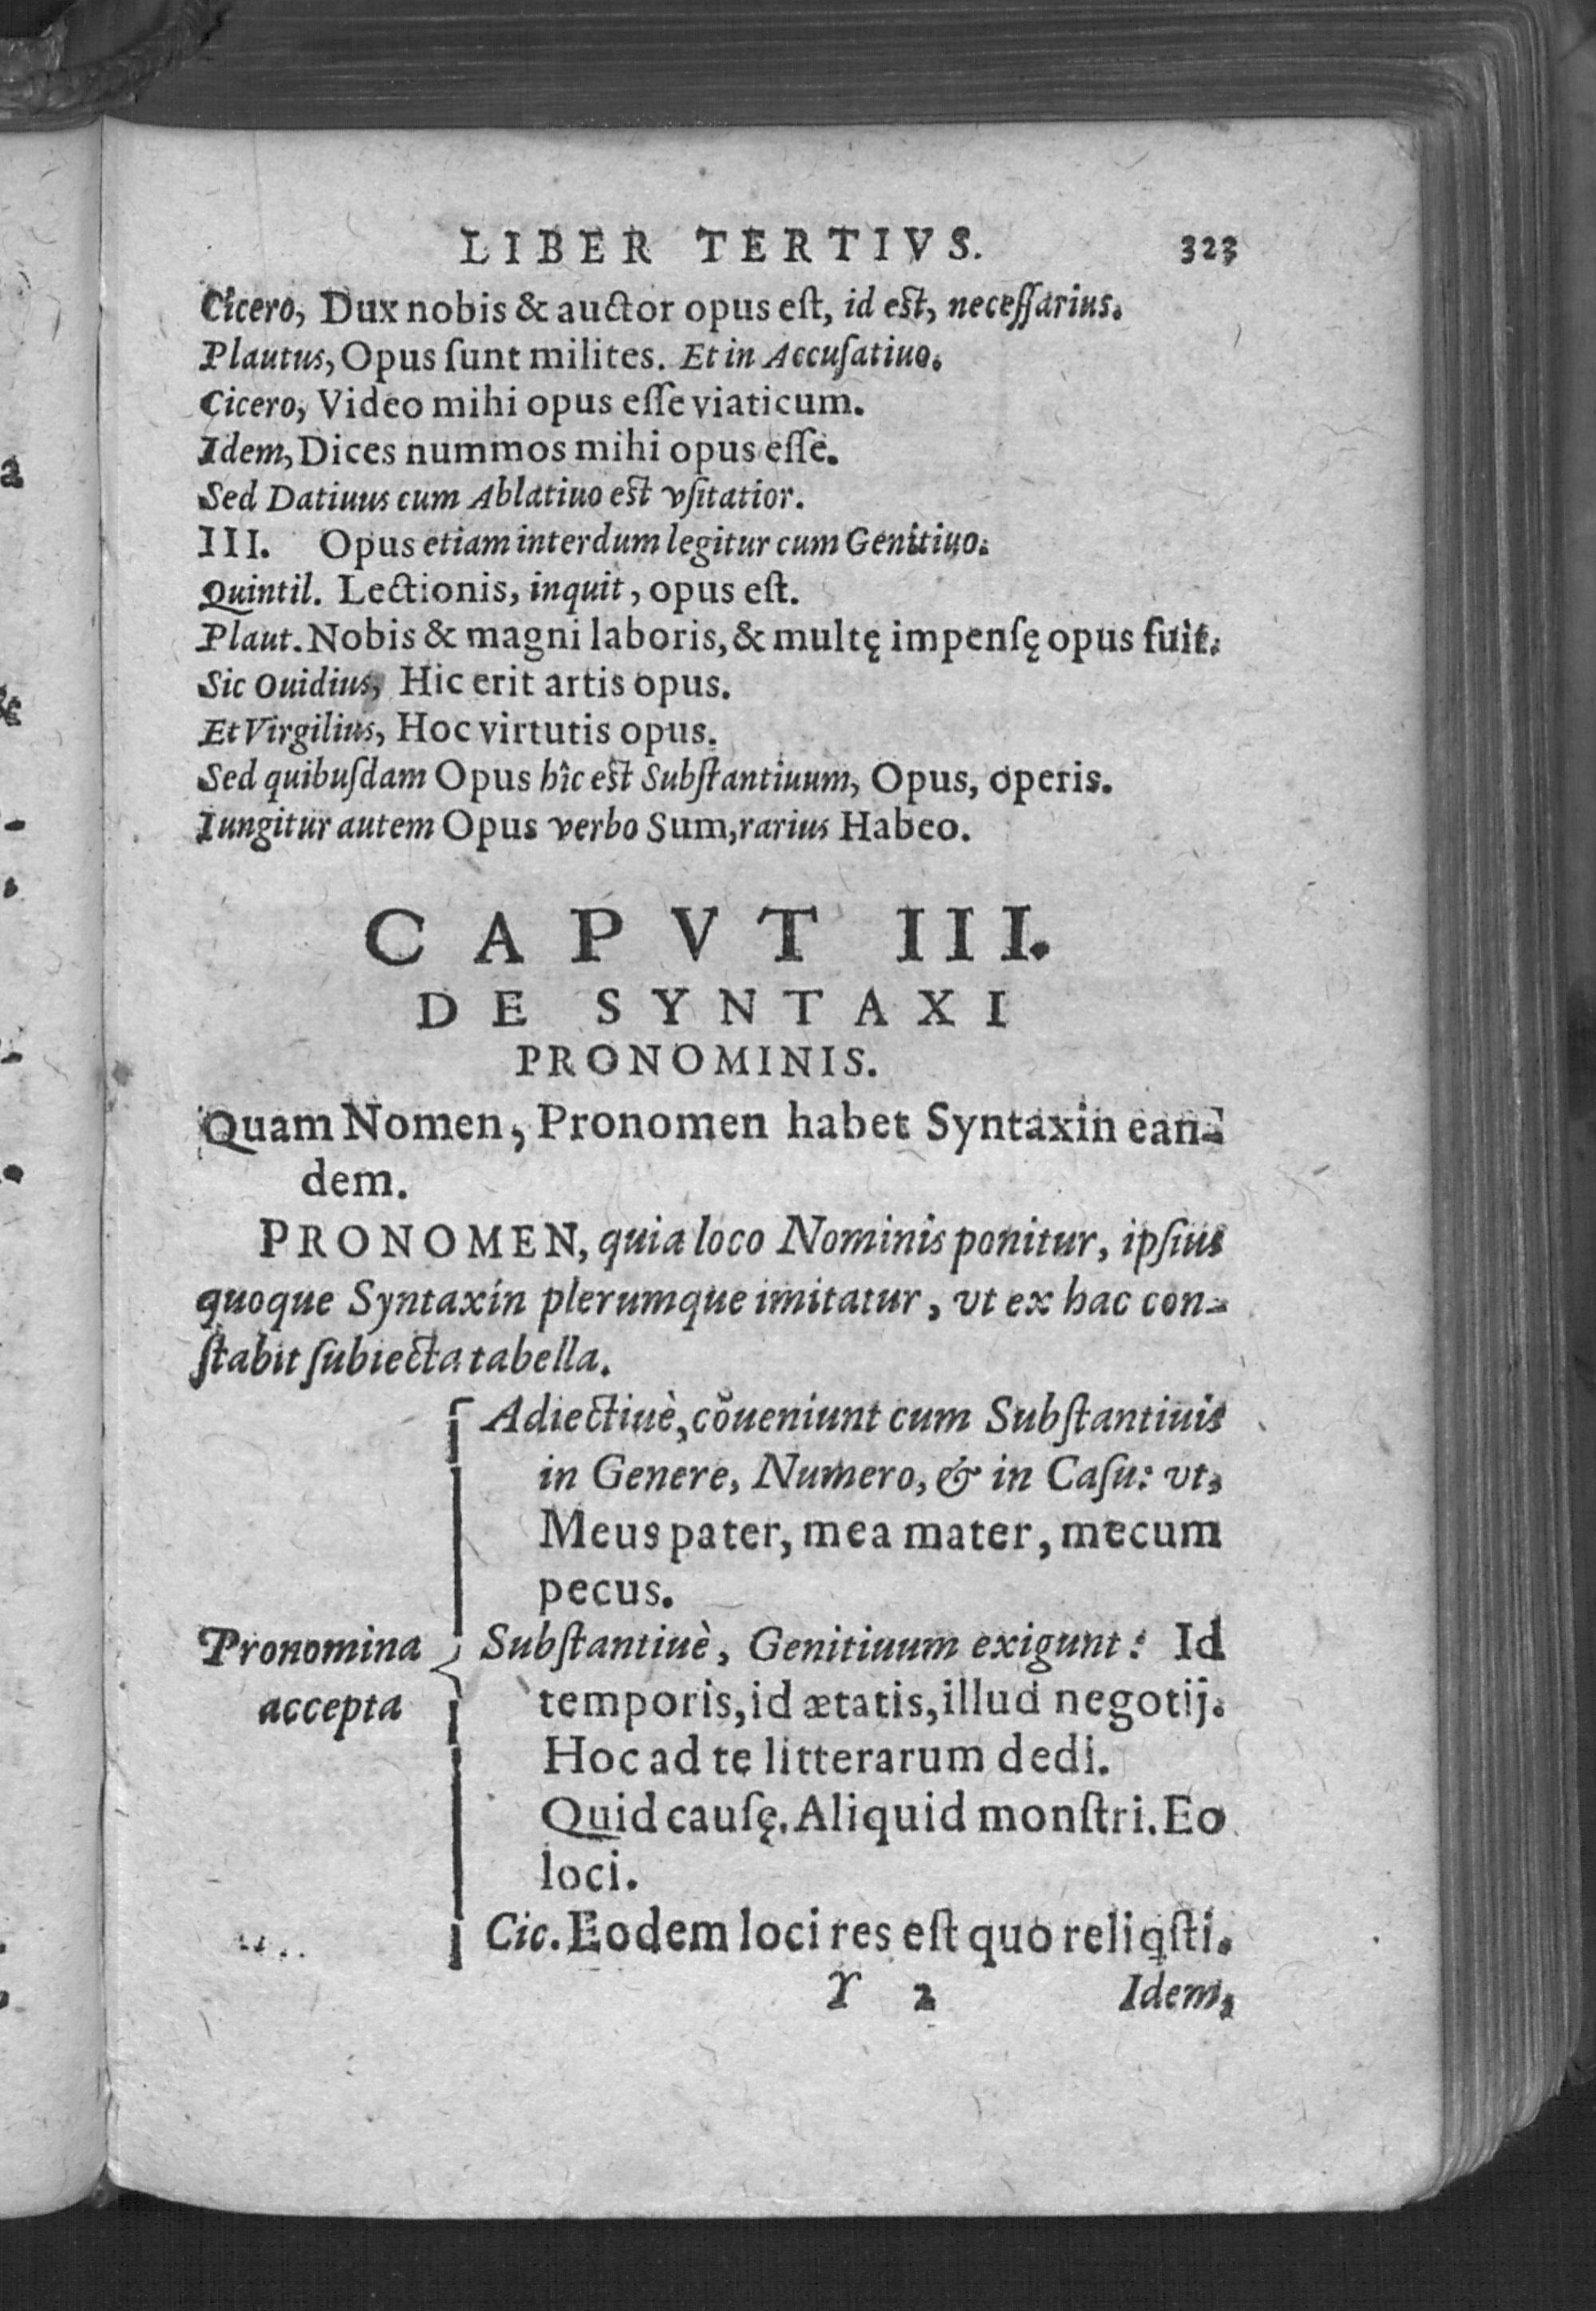 LIBER TERTIVS. 323
Cicero, Dux nobis & auctor opus eſt, id eſt, neceſſarius.
Plautus, Opus ſunt milites. Et in Accuſatiuo.
Cicero, Video mihi opus eſſe viaticum.
Idem, Dices nummos mihi opus eſſe.
Sed Datiuus cum Ablatiuo eſt vſitatior.
III. Opus etiam interdum legitur cum Genitiuo.
Quintil. Lectionis, inquit, opus eſt.
Plaut. Nobis & magni laboris, & multę impenſę opus fuit.
Sic Ouidius, Hic erit artis opus.
Et Virgilius, Hoc virtutis opus.
Sed quibuſdam Opus hîc eſt Subſtantiuum, Opus, operis.
Iungitur autem Opus verbo Sum, rarius Habeo.
CAPVT III.
DE SYNTAXI
PRONOMINIS.
Quam Nomen, Pronomen habet Syntaxin ean-
dem.
PRONOMEN, quia loco Nominis ponitur, ipſius
quoque Syntaxin plerumque imitatur, vt ex hac con-
ſtabit ſubiecta tabella.
Adiectiuè, cõueniunt cum Subſtantiuis
in Genere, Numero, & in Caſu: vt,
Meus pater, mea mater, mecum
pecus.
Pronomina
accepta
Subſtantiuè, Genitiuum exigunt: Id
temporis, id ætatis, illud negotij.
Hoc ad te litterarum dedi.
Quid cauſę. Aliquid monſtri. Eo
loci.
Cic. Eodem loci res eſt quo reliqſti.
Y 2 Idem,